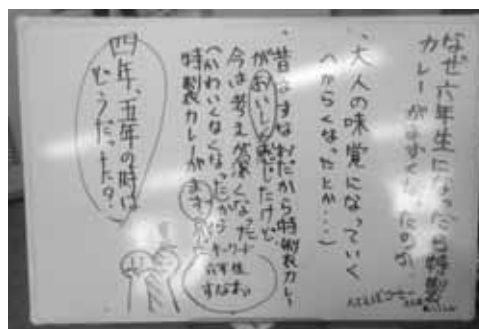 なぜ六年生になったら特製
カレーがまずくなったのか
・大人の味覚になっていく
(からくなったとか・・・)
・昔はすなおだから特製カレー
がおいしく感じたけど
今は考えが深くなった
(かわいくなくなった)から
特製カレーがまずい
キーワード
六年生
すなおい
四年、五年の時は
どうだった?